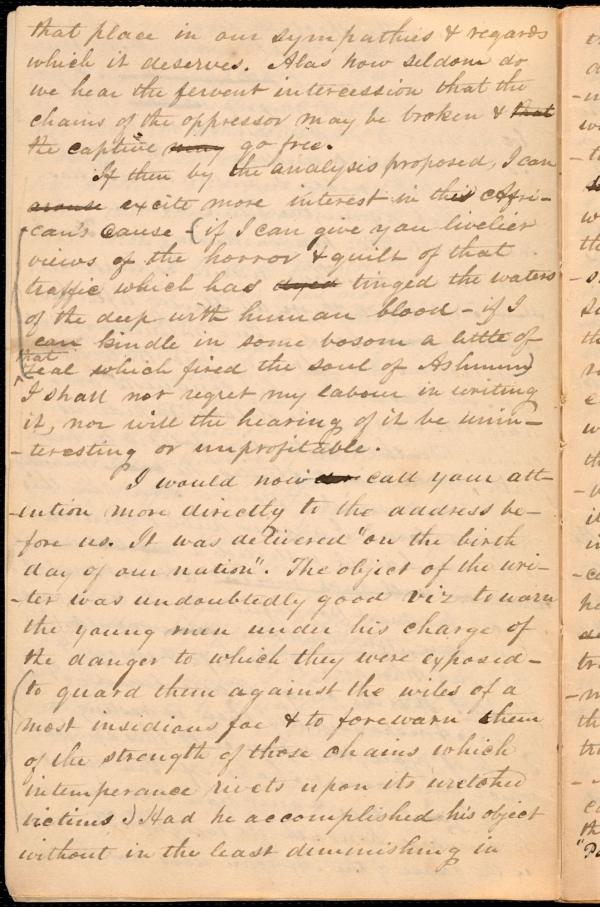 that place in our sympathies & regards
which it deserves. Alas how seldom do
we hear the fervent intercession that the
chains of the oppressor may be broken & that
the captive may go free.
If then by the analysis proposed, I can
arouse excite more interest in this Afri-
can's cause - (if I can give you livelier
views of the horror & guilt of that
traffic which has dyed tinged the waters
of the deep with human blood - if I
can kindle in some bosom a little of
that
zeal which fired the soul of Ashmun)
I shall not regret my labour in writing
it, nor will the hearing of it be unin-
-teresting or unprofitable.
I would now call your att-
-ention more directly to the address be-
fore us. It was delivered "on the birth
day of our nation". The object of the wri-
-ter was undoubtedly good viz to warn
the young men under his charge of
the danger to which they were exposed-
(to guard them against the wiles of a
most insidious foe & to forewarn them
of the strength of those chains which
intemperance rivets upon its wretched
victims) Had he accomplished his object
without in the least diminishing in